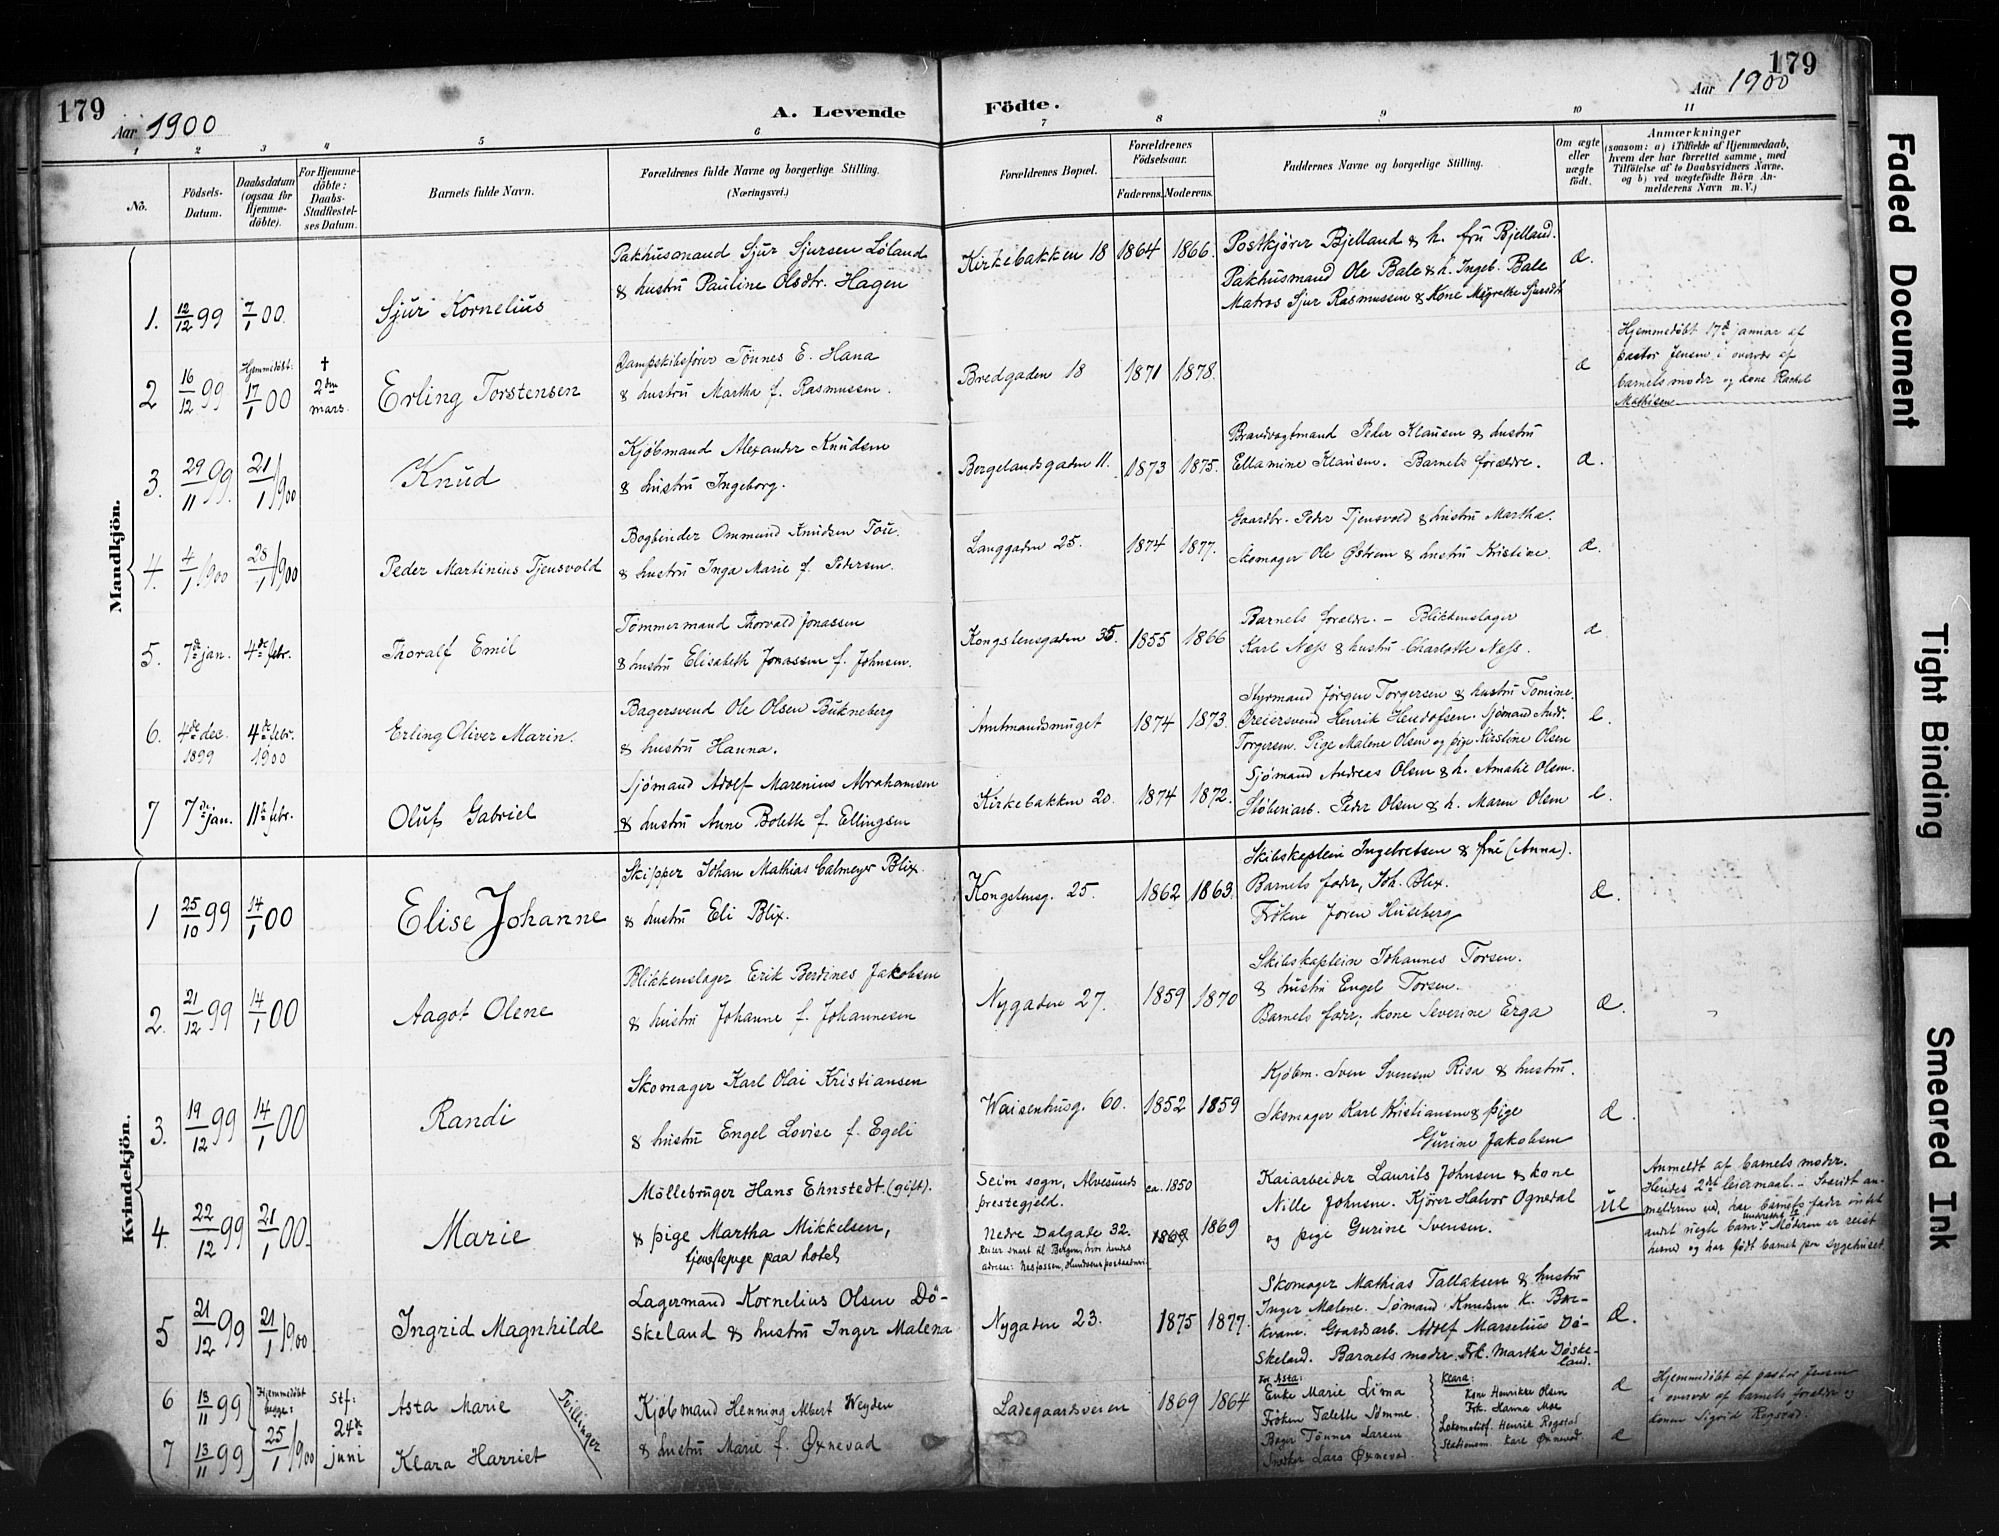 179
Aar 1900
A. Levende Födte.
179
Aar 1900
1 2 3 4 5 6 7 8 9 10 11
No.
Födsels-Datum.
Daabsdatum (ogsaa for Hjemme-döbte).
For Hjemme-döbte: Daabs-Stadfæstel-ses Datum.
Barnets fulde Navn.
Forældrenes fulde Navne og borgerlige Stilling.
(Næringsvei.)
Forældrenes Bopæl.
Forældrenes Födselsaar.
Faderens. Moderens.
Faddernes Navne og borgerlige Stilling.
Om ægte eller uægte födt.
Anmærkninger
(saasom: a) i Tilfælde af Hjemmedaab, hvem der har forrettet samme, med Tilföielse af to Daabsvidners Navne, og b) ved uægtefödte Börn An-melderens Navn m. V.)
Mandkjön.
1. 12/12 99 7/1 00. Sjur Kornelius
Pakhusmand Sjur Sjursen Løland
& hustru Pauline Olsdtr. Hagen
Kirkebakken 18 1864 1866.
Postkjører Bjelland & h. fru Bjelland.
Pakhusmand Ole Bale & h. Ingeb. Bale
Matros Sjur Rasmussen & Kone Mägrethe Sjursdtr
Æ.
2 16/12 99 Hjemmedøbt: 17/1 00 † 2den mars. Erling Torstensen
Dampskibsfører Tönnes E. Hana
& hustru Martha f. Rasmussen.
Bredgaden 18 1871 1878.
Æ
Hjemmedöbt 17de januar af
pastor Jensen i overvær af
barnets moder og kone Rachel
Mathisen
3. 29/11 99. 21/1 1900 Knud
Kjøbmand Alexander Knudsen
& hustru Ingeborg.
Bergelandsgaden 11. 1873 1875.
Brandvagtmand Peder Klausen & hustru
Ellamine Klausen. Barnets forældre.
Æ.
4. 4/1 1900 28/1 1900 Peder Martinius Tjensvold
Bogbinder Ommund Knudsen Tou.
& hustru Inga Marie f. Pedersen.
Langgaden 25. 1874 1877.
Gaardbr. Peder Tjensvold & hustru Martha.
Skomager Ole Østrem & hustru Kristine.
Æ.
5. 7de jan. 4de febr. Thoralf Emil
Tømmermand Thorvald Jonassen
& hustru Elisabeth Jonassen f. Johnsen.
Kongstensgaden 35. 1855 1866
Barnets forældre. – Blikkenslager
Karl Næss & hustru Charlotte Næss.
Æ
6. 4de dec. 1899 4de febr. 1900 Erling Oliver Marin.
Bagersvend Ole Olsen Bukneberg
& hustru Hanna.
Amtmandsmuget 1874 1873.
Styrmand Jørgen Torgersen & hustru Tomine.
Dreiersvend Henrik Sjømand Andr.
Torgersen. Pige Malene Olsen og pige Kirstine Olsen
7 7de jan. 11te febr. Oluf Gabriel
Sjømand Adolf Marenius Abrahamsen
& hustru Anne Bolette f. Ellingsen
Kirkebakken 20. 1874 1872.
Sjømand Andreas Olsen & h. Amalie Olsen.
Støberiarb. Peder Olsen & h. Maren Olsen
Kvindekjön.
1 25/10 99 14/1 00 Elise Johanne
Skipper Johan Mathias Calmeyer Blix
& hustru Eli Blix.
Kongstensg. 25. 1862 1863.
Skibskaptein Ingebretsen & frue (Anna).
Barnets fader, Joh. Blix.
Frøken Joren Huseberg
Æ.
2. 21/12 99 14/1 00 Aagot Olene
Blikkenslager Erik Berdines Jakobsen
& hustru Johanne f. Johannesen
Nygaden 27. 1859 1870
Skibskaptein Johannes Torsen.
& hustru Engel Torsen.
Barnets fader, kone Severine Erga
Æ.
3. 19/12 99 14/1 00 Randi
Skomager Karl Olai Kristiansen
& hustru Engel Lovise f. Egeli
Waisenhusg. 60. 1852 1859
Kjøbm. Sven Svensen Risa & hustru.
Skomager Karl Kristiansen & pige
Gurine Jakobsen
Æ.
4. 22/12 99 21/1 00. Marie
Möllebruger Hans Ehnstedt. (gift).
& pige Martha Mikkelsen,
tjenestepige paa hotel
Seim sogn, Alvesunds ca. 1850
prestegjeld.
Nedre Dalgade 32. 1869 1869
Reiser snart til Bergen, hvor hendes
adresse: Nesfossen, Hundseim
Kaiarbeider Laurits Johnsen & kone
Nille Johnsen. Kjører Halvor Ognedal
og pige Gurine Svensen.
UÆ
Anmeldt af barnets moder.
Hendes 2det leiermaal. – Saavidt an-
melderen ved, har barnets fader intet
andet uegte barn. Moderen er reist
herned og har født barnet paa sygehuset.
5 21/12 99 21/1 1900 Ingrid Magnhilde
Lagermand Kornelius Olsen Dö-
skeland & hustru Inger Malena
Nygaden 23. 1875 1877.
Skomager Mathias Tallaksen & hustru
Inger Malene. Sømand Knudsen K. Bar-
kvam. Gaardsarb. Adolf Marselius Dö-
skeland. Barnets moder. Frk. Martha Döske-
land.
Æ.
6 13/11 99 Hjemmedöbt begge: Stf: Asta Marie Tvillinger
Kjøbmand Henning Albert Weyden
Ladegaardsveien 1869 1864
For Asta:
Enke Marie Lima
Frøken Talette Sømme.
Bager Tønnes Larsen
Snedker Lars Øxnevad.
Klara:
Kone Henrikke Olsen
Frk. Hanna Moe
Lokomotivf. Henrik Rogstad
Stationsm. Karl Øxnevad.
Æ
Hjemmedöbt af pastor Jensen
i overvær af barnets forældre &
konen Sigrid Rogstad.
7 13/11 99 25/1 1900 24de juni Klara Harriet
& hustru Marie f. Øxnevad
Æ
Faded Document
Tight Binding
Smeared Ink